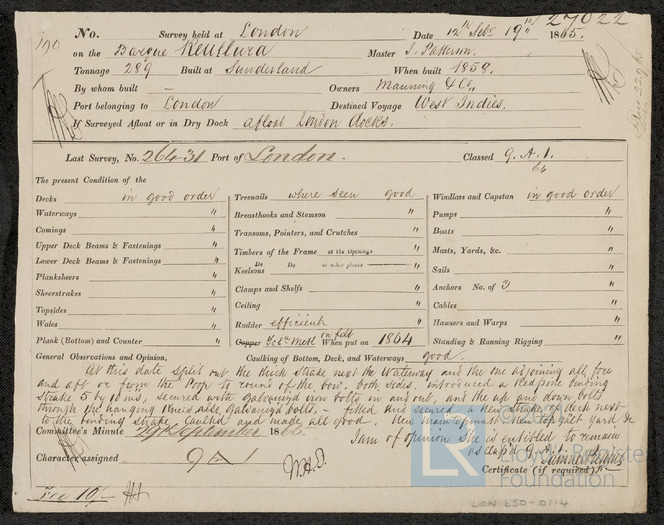 27022
No. Survey held at London Date 12th Sept 19th 1865.
190
on the Barque Reullura Master J. Patterson.
Tonnage 289 Built at Sunderland When built 1858.
By whom built - Owners Manning & Co,
Port belonging to London Destined Voyage West Indies.
If Surveyed Afloat or in Dry Dock afloat London docks.
Last Survey, No. 26431 Port of London. Classed 9. A. 1.
64
The present Condition of the
Decks in good order
Waterways "
Comings "
Upper Deck Beams & Fastenings "
Lower Deck Beams & Fastenings "
Planksheers "
Sheerstrakes "
Topsides "
Wales "
Plank (Bottom) and Counter "
Treenails where seen good
Breasthooks and Stemson "
Transoms, Pointers, and Crutches "
Timbers of the Frame at the Openings "
Do Do at other places "
Keelsons "
Clamps and Shelfs "
Ceiling "
Rudder efficient "
Copper Yel. Metl on felt When put on 1864
Windlass and Capstan in good order
Pumps "
Boats "
Masts, Yards, &c. "
Sails "
Anchors No. of 3 "
Cables "
Hawsers and Warps "
Standing & Running Rigging "
General Observations and Opinion, Caulking of Bottom, Deck, and Waterways good.
At this date split out the thick strake next the Waterway and the one adjoining all fore
and aft or from the Poop to round of the bow, both sides. introduced a Red pine binding
Strake 5 by 10 ins, secured with galvanized iron bolts in and out, and the up and down bolts
through the hanging knees also, Galvanized bolts, - fitted and secured a New Strake of deck next
to the binding strake caulked and made all good. New maintopmast New topgallt yard &c
Committee's Minute 29th September 1865.
I am of opinion She is entitled to remain
as class'd 9.
Character assigned 9 A 1
Certificate (if required)
Fee 10/-
Lloyd's Register
Foundation
LR
LON 650-0114